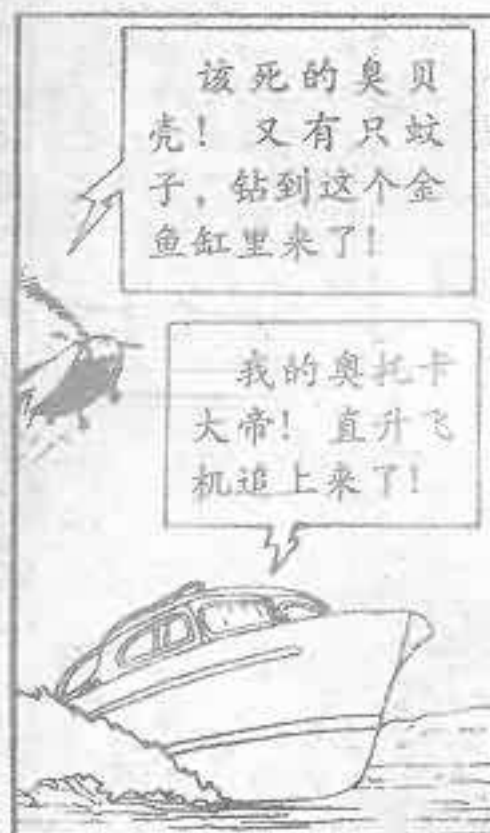 该死的臭贝
壳！又有只蚊
子，钻到这个金
鱼缸里来了！
我的奥托卡
大帝！直升飞
机追上来了！